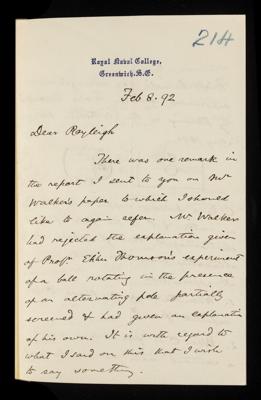 214
Royal Naval College,
Greenwich. S.E.
Feb 8. 92
Dear Rayleigh
There was one remark in
the report I sent to you on Mr
Walker's paper to which I should
like to again refer. Mr Walker
had rejected the explanation given
of Profr Elihu Thomson's experiment
of a ball rotating in the presence
of an alternating pole partially
screened & had given an explanation
of his own. It is with regard to
what I said on this that I wish
to say something.